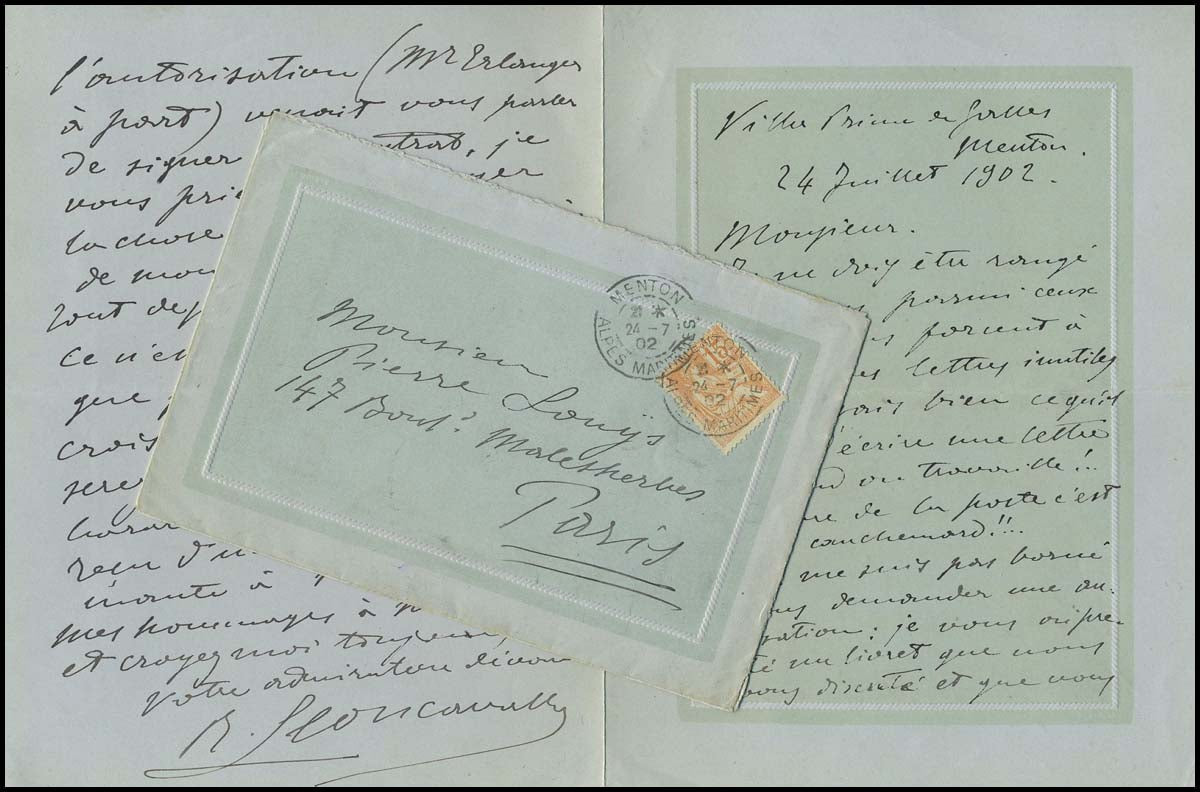 l'autorisation (Mr Erlanger
à part) venait vous parler
de signer ntrat, je
vous prie
la chose
de mon
tout dep
ce n'es
que
crois
serez
reçu d'u
minute à
mes hommages à
et croyez moi toujours
votre admirateur dévou
R. Leoncavallo
Monsieur
Pierre Louÿs
147 Boulᵈ Malesherbes
Paris
MENTON
24 - 7
02
ALPES MARITIMES
15
24 - 7
02
ALPES MARITIMES
Villa Prince de Galles
Menton.
24 Juillet 1902.
Monsieur.
ne dois être rangé
parmi ceux
forcent à
lettres inutiles
ais bien ce qu'il
écrire une lettre
d on travaille!..
re de la poste c'est
cauchemard!!..
me suis pas borné
us demander une au-
ation: je vous ai pre-
té un livret que nous
vons discuté et que vous